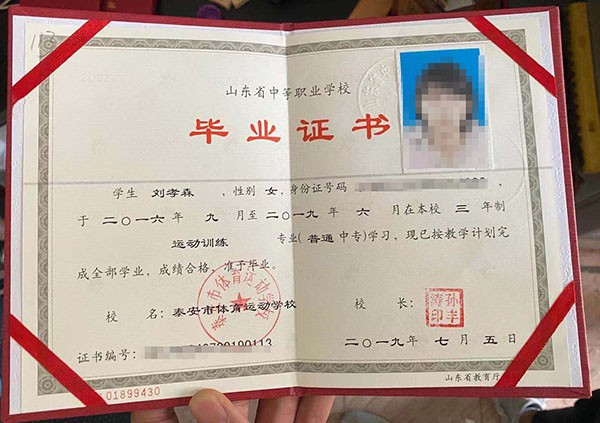 山东省中等职业学校
毕业证书
学生 刘孝森 ,性别 女 ,身份证号码
于 二〇一六 年 九 月至 二〇一九 年 六 月在本校 三 年制
运动训练 专业( 普通 中专)学习、现已按教学计划完
成全部学业,成绩合格,准于毕业。
校 名: 泰安市体育运动学校 校 长:
泰安市体育运动学校
证书编号: 二〇一九 年 七 月 五 日
01899430 山东省教育厅